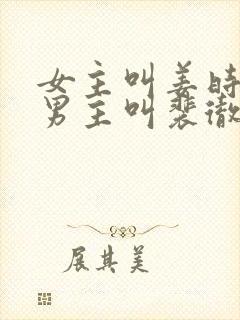 女主叫姜时
男主叫裴澈
展其美